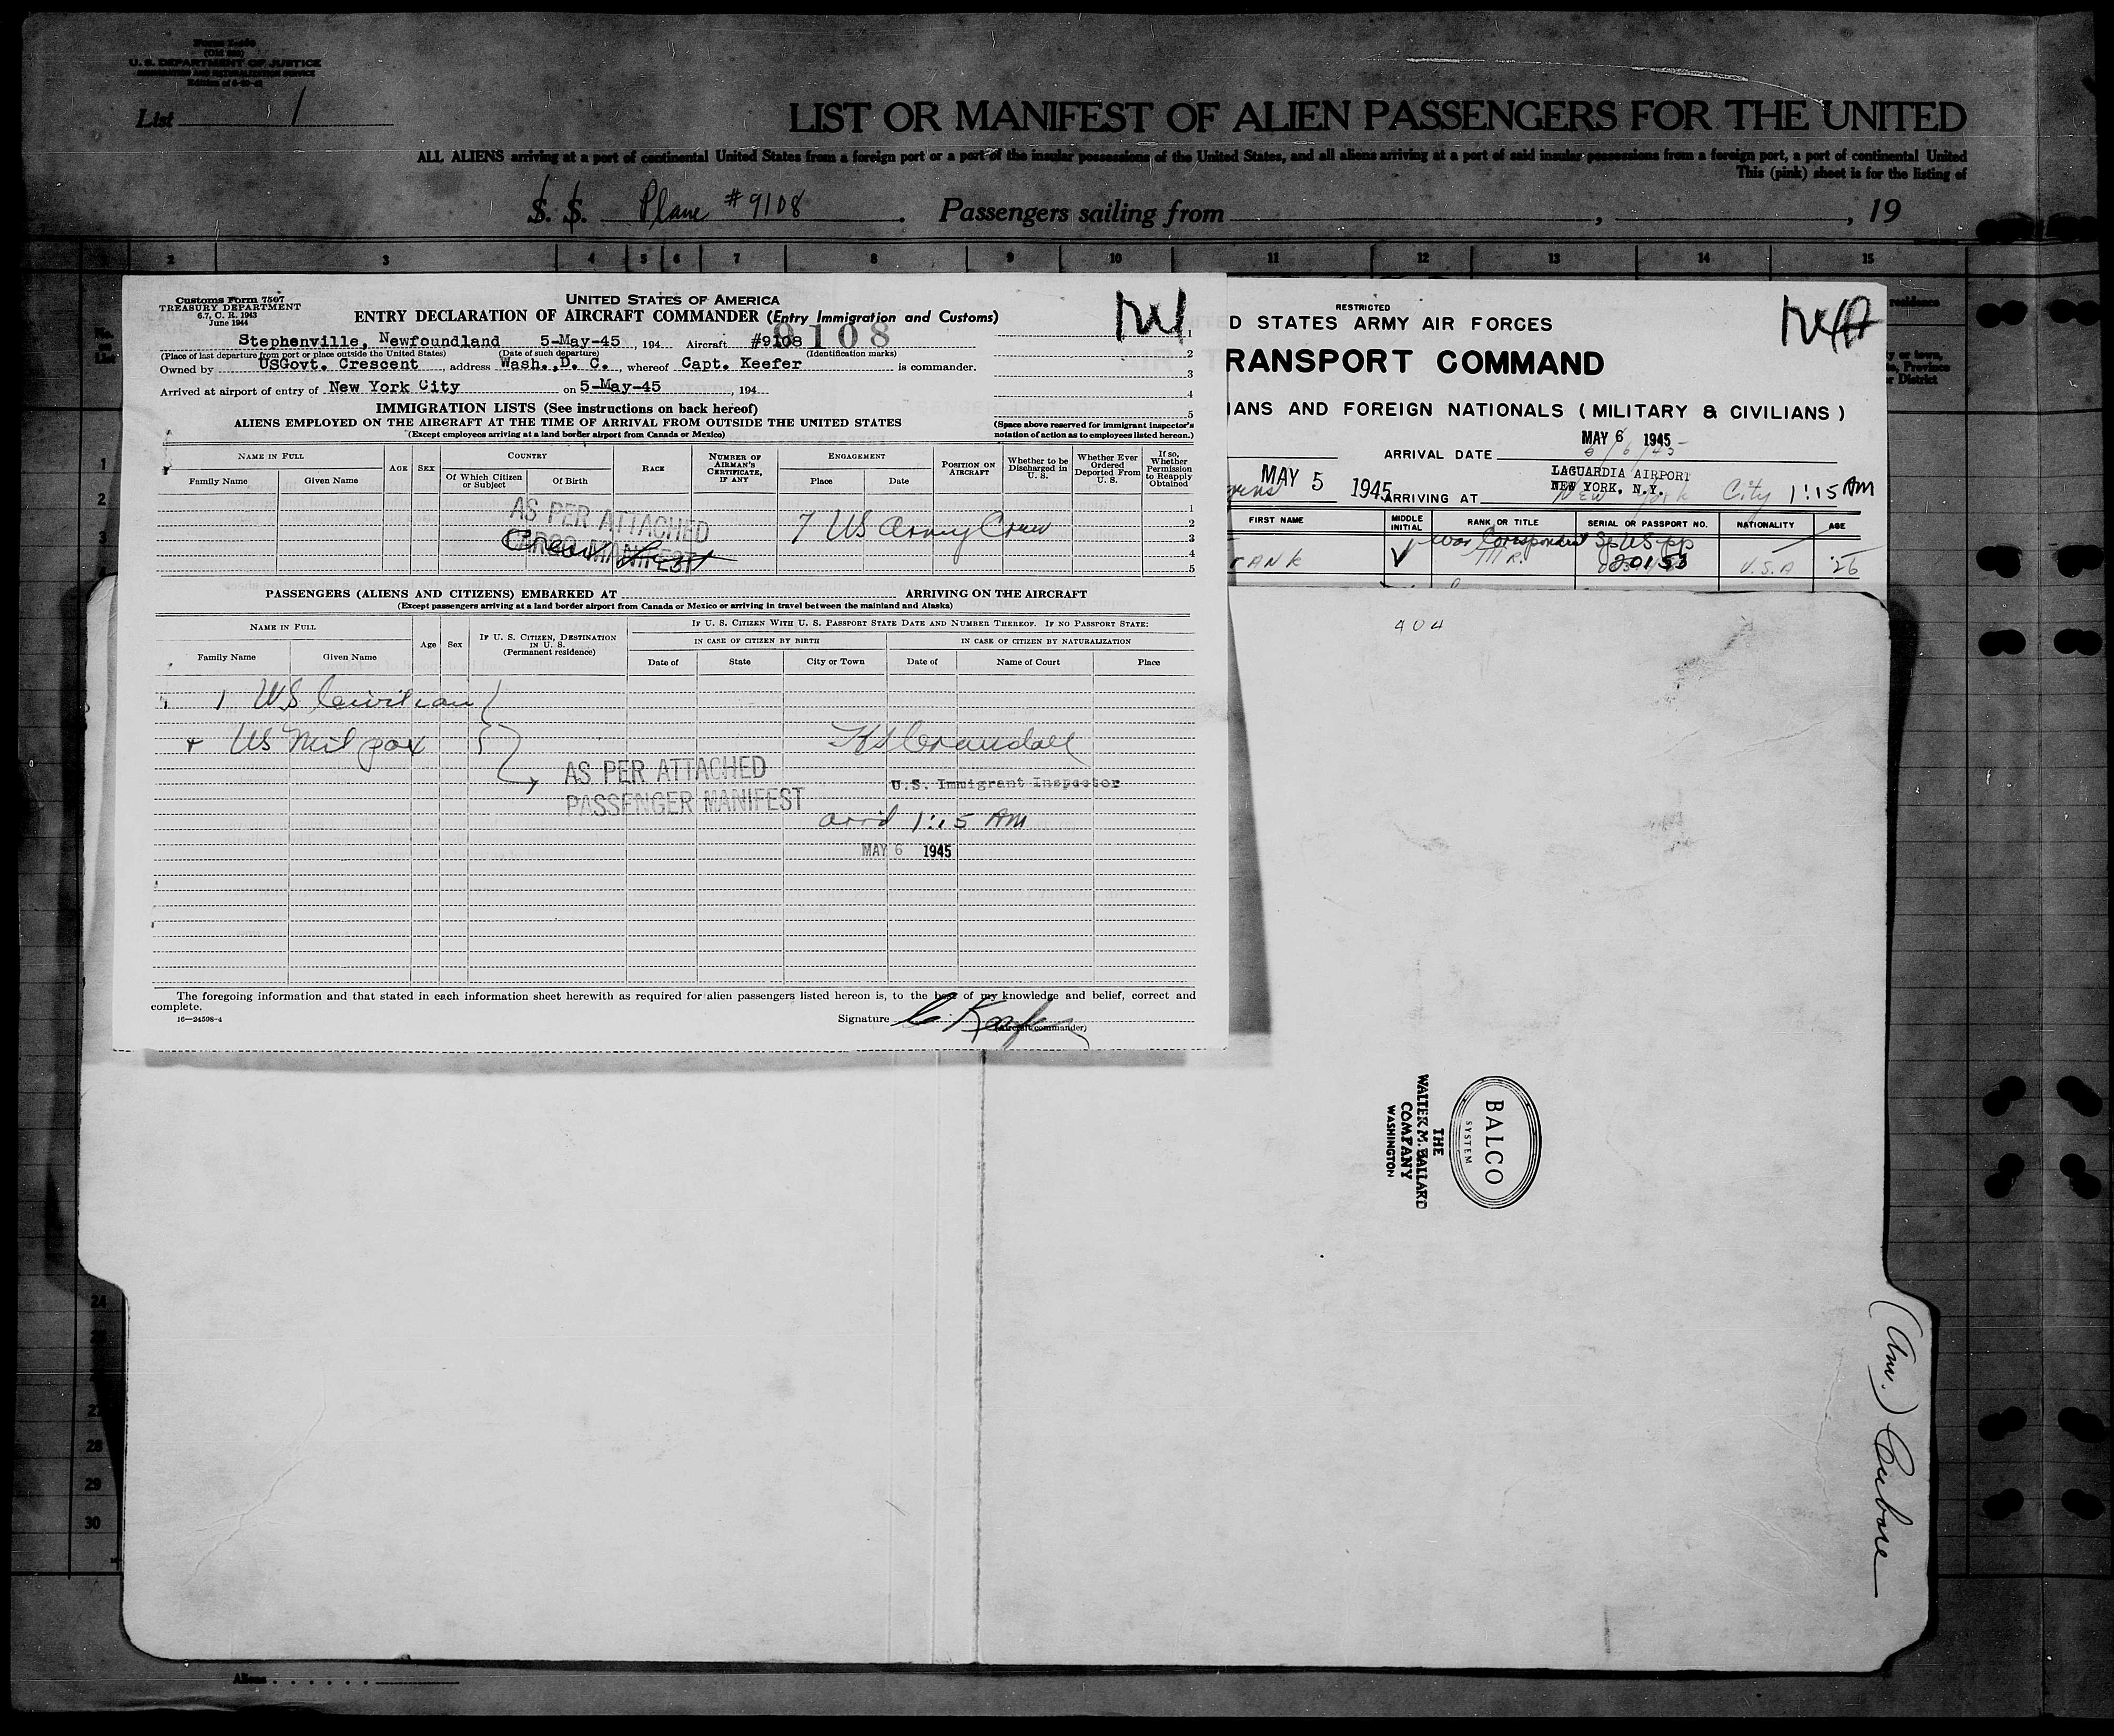 Form I-460
(Old 500)
U. S. DEPARTMENT OF JUSTICE
IMMIGRATION AND NATURALIZATION SERVICE
List 1
LIST OR MANIFEST OF ALIEN PASSENGERS FOR THE UNITED
ALL ALIENS arriving at a port of continental United States from a foreign port or a port of the insular possessions of the United States, and all aliens arriving at a port of said insular possessions from a foreign port, a port of continental United
This (pink) sheet is for the listing of
S. S. Plane #9108. Passengers sailing from , , 19
2 3 4 5 6 7 8 9 10 11 12 13 14 15
Customs Form 7507
TREASURY DEPARTMENT
6.7, C. R. 1943
June 1944
UNITED STATES OF AMERICA
ENTRY DECLARATION OF AIRCRAFT COMMANDER (Entry Immigration and Customs)
Stephenville, Newfoundland 5-May-45 , 194 Aircraft #9108 9108
(Place of last departure from port or place outside the United States) (Date of such departure) (Identification marks)
Owned by USGovt. Crescent , address Wash.,D. C. , whereof Capt. Keefer is commander.
Arrived at airport of entry of New York City on 5-May-45 , 194
1
2
3
4
5
(Space above reserved for immigrant inspector's notation of action as to employees listed hereon.)
IMMIGRATION LISTS (See instructions on back hereof)
ALIENS EMPLOYED ON THE AIRCRAFT AT THE TIME OF ARRIVAL FROM OUTSIDE THE UNITED STATES
(Except employees arriving at a land border airport from Canada or Mexico)
NAME IN FULL AGE SEX COUNTRY RACE NUMBER OF AIRMAN'S CERTIFICATE, IF ANY ENGAGEMENT POSITION ON AIRCRAFT Whether to be Discharged in U. S. Whether Ever Ordered Deported From U. S. If so, Whether Permission to Reapply Obtained
Family Name Given Name Of Which Citizen or Subject Of Birth Place Date
AS PER ATTACHED
CARGO MANIFEST
Crew List
7 US Army Crew
1
2
3
4
5
PASSENGERS (ALIENS AND CITIZENS) EMBARKED AT ARRIVING ON THE AIRCRAFT
(Except passengers arriving at a land border airport from Canada or Mexico or arriving in travel between the mainland and Alaska)
NAME IN FULL Age Sex IF U. S. CITIZEN, DESTINATION IN U. S. (Permanent residence) IF U. S. CITIZEN WITH U. S. PASSPORT STATE DATE AND NUMBER THEREOF. IF NO PASSPORT STATE:
IN CASE OF CITIZEN BY BIRTH IN CASE OF CITIZEN BY NATURALIZATION
Family Name Given Name Date of State City or Town Date of Name of Court Place
1 US Civilian
+ US Mil pax
AS PER ATTACHED
PASSENGER MANIFEST
Crandall
U.S. Immigrant Inspector
arrd 1:15 AM
MAY 6 1945
The foregoing information and that stated in each information sheet herewith as required for alien passengers listed hereon is, to the best of my knowledge and belief, correct and
complete.
16—24598-4
Signature C Keefer
(Aircraft commander)
RESTRICTED
D STATES ARMY AIR FORCES
RANSPORT COMMAND
IANS AND FOREIGN NATIONALS (MILITARY & CIVILIANS)
MAY 6 1945
ARRIVAL DATE 5/6/45
MAY 5 1945
LAGUARDIA AIRPORT
NEW YORK, N.Y.
ARRIVING AT New York City 1:15 AM
FIRST NAME MIDDLE INITIAL RANK OR TITLE SERIAL OR PASSPORT NO. NATIONALITY AGE
War Correspondent Sp US pp
RANK V MR. 20153 U.S.A 26
404
BALCO
SYSTEM
THE
WALTER M. BALLARD
COMPANY
WASHINGTON
1
2
3
24
28
29
30
Aliens